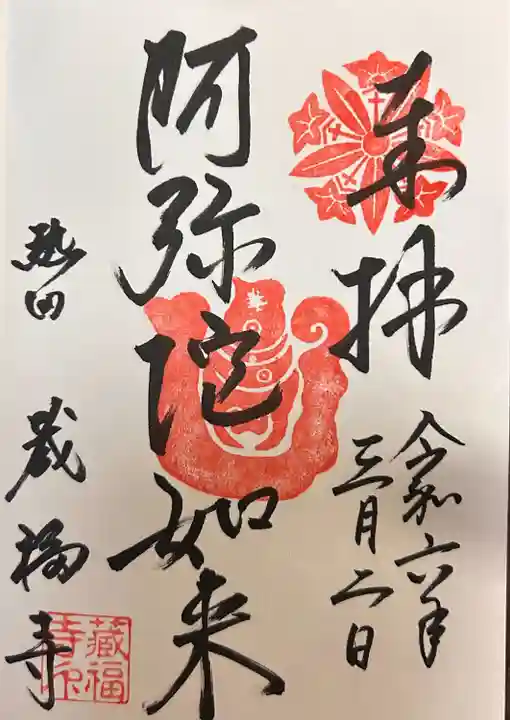 奉拝
令和六年
三月二日
阿弥陀如来
熱田
蔵福寺
藏福寺印